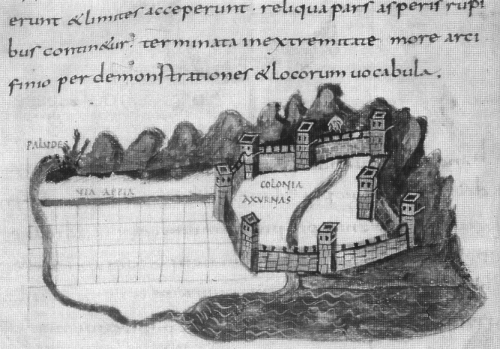 erunt & limites acceperunt · reliqua pars asperis rupi
bus contin&ur · terminata in extremitate more arci
finio per demonstrationes & locorum uocabula ,
PALUDES
VIA APPIA
COLONIA
AXURNAS